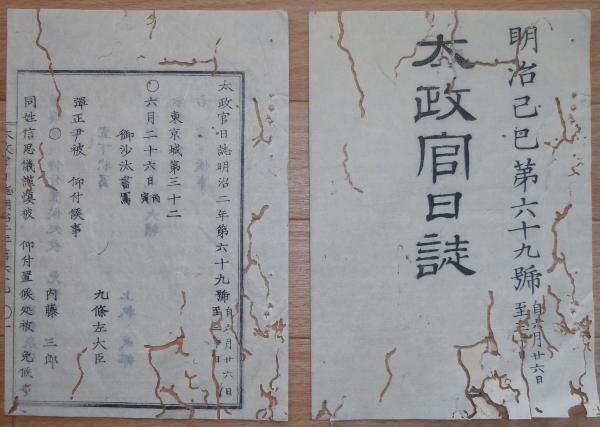 明治己巳第六十九號 自六月廿六日
太政官日誌
太政官日誌明治二年第六十九號 自六月廿六日
東京城第三十二
〇六月二十六日 丙寅
御沙汰書寫
九條左大臣
彈正尹被 仰付候事
内藤 三郎
同姓信思儀謹愼被 仰付置候処被 免候事